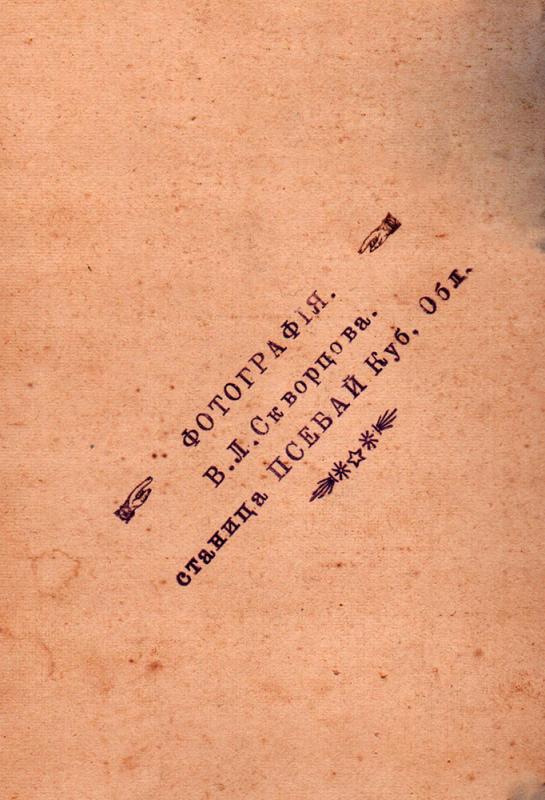 ФОТОГРАФІЯ.
В.Л.Скворцова.
станица ПСЕБАЙ Куб, Обл.